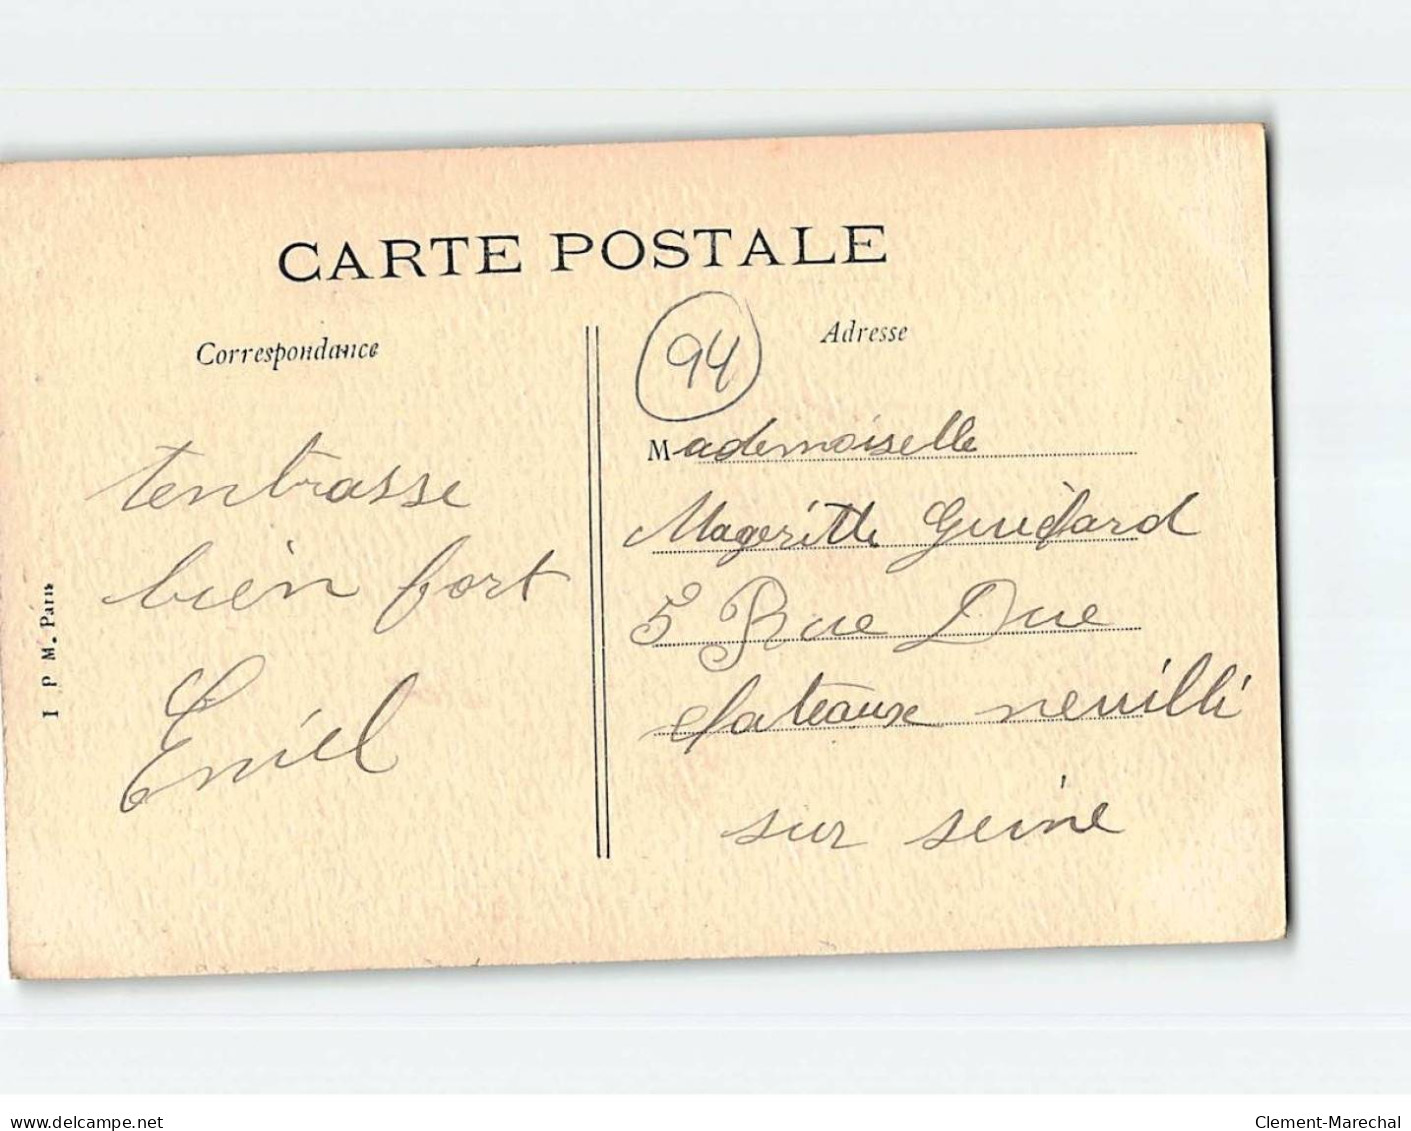 CARTE POSTALE
Correspondance
Adresse
94
tenbrasse
bien fort
Emiel
Mademoiselle
Mageritte
5 Rue Due
neuilli
sur seine
I P M. Paris
www.delcampe.net
Clement-Marechal